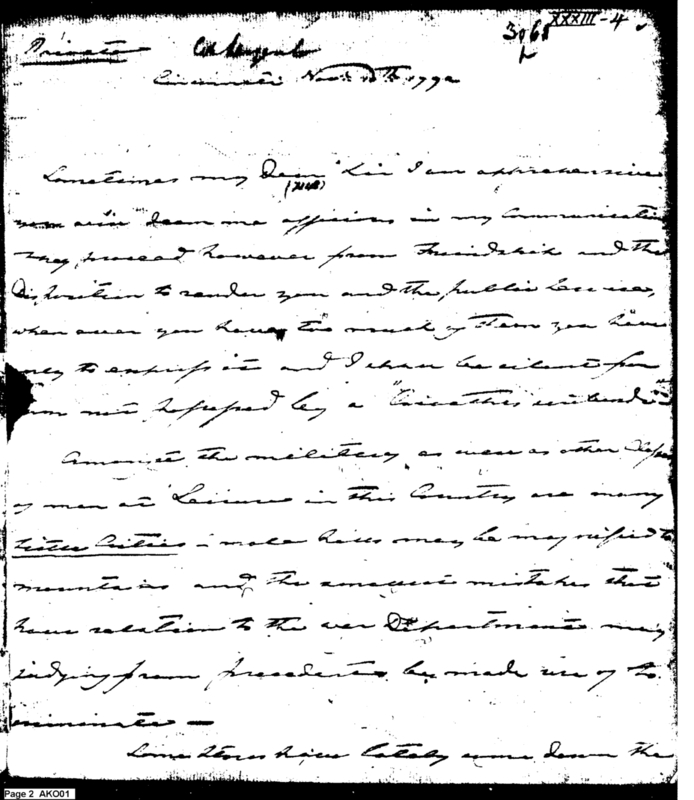 XXXIII-4
Private
Cincinnati Nov. 10th 1792
Sometimes my Dear Sir I am apprehensive
you will deem me officious in my Communications
they proceed however from Friendship and the
Disposition to render you and the public Service,
when ever you have too much of them you have
only to express it and I shall be silent for
am not possessed by a
Amongst the military as well as other Classes
of men at Leisure in this Country are many
little Critics - mole hills may be magnified to
mountains and the smallest mistakes that
have relation to the war Department may
judging from precedents be made use of to
criminate —
Some Stores have lately come down the
Page 2 AKO01